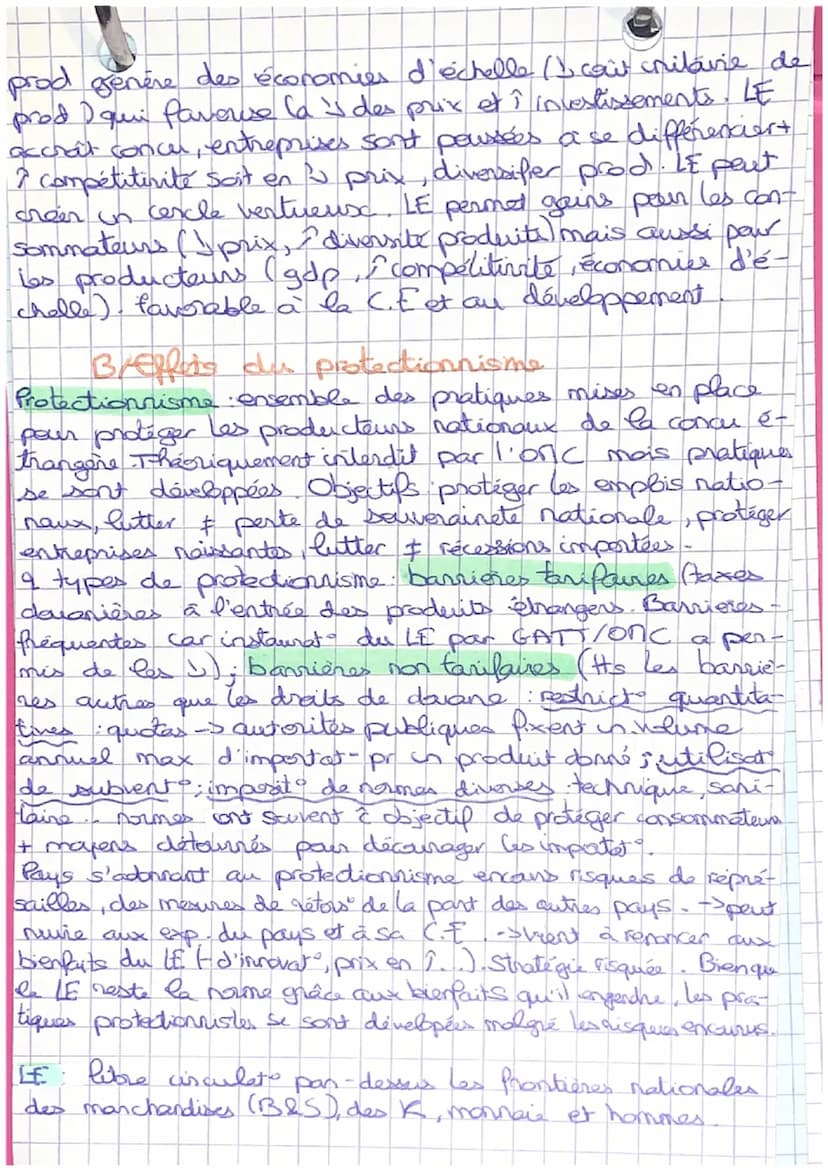 prod génère des économies d'échelle (↘ coût unitaire de
prod) qui favorise la ↘ des prix et ↑ investissements. LE
accroît concu, entreprises sont poussées à se différencier +
↗ compétitivité soit en ↘ prix, diversifier prod. LE peut
créer un cercle vertueux. LE permet gains pour les con-
sommateurs (↘ prix, ↗ diversité produits) mais aussi pour
les producteurs (gdp, ↑ compétitivité, économies d'é-
chelle). favorable à la C.E et au développement.
B/ Effets du protectionnisme
Protectionnisme : ensemble des pratiques mises en place
pour protéger les producteurs nationaux de la concu é-
trangère. Théoriquement interdit par l'OMC mais pratiques
se sont développées. Objectifs : protéger les emplois natio-
naux, lutter ≠ perte de souveraineté nationale, protéger
entreprises naissantes, lutter ≠ récessions importées.
2 types de protectionnisme : barrières tarifaires (taxes
douanières à l'entrée des produits étrangers. Barrières -
fréquentes car instaurat° du LE par GATT/OMC a per-
mis de les ↘) ; barrières non tarifaires (tts les barriè-
res autres que les droits de douane : restrict° quantita-
tives : quotas -> autorités publiques fixent un volume
annuel max d'importat- pr un produit donné ; utilisat°
de subvent° ; imposit° de normes diverses : technique, sani-
taire... normes ont souvent c objectif de protéger consommateurs
+ moyens détournés pour décourager les importat°.
Pays s'adonnant au protectionnisme encours risques de repré-
sailles, des mesures de rétors° de la part des autres pays. -> peut
nuire aux exp. du pays et à sa C.E. -> vient à renoncer aux
bienfaits du LE (- d'innovat°, prix en ↑..). Stratégie risquée. Bien que
le LE reste la norme grâce aux bienfaits qu'il engendre, les pra-
tiques protectionnistes se sont dévelopées malgré les risques encourus.
LE : libre circulat° par-dessus les frontières nationales
des marchandises (B&S), des K, monnaie et hommes.